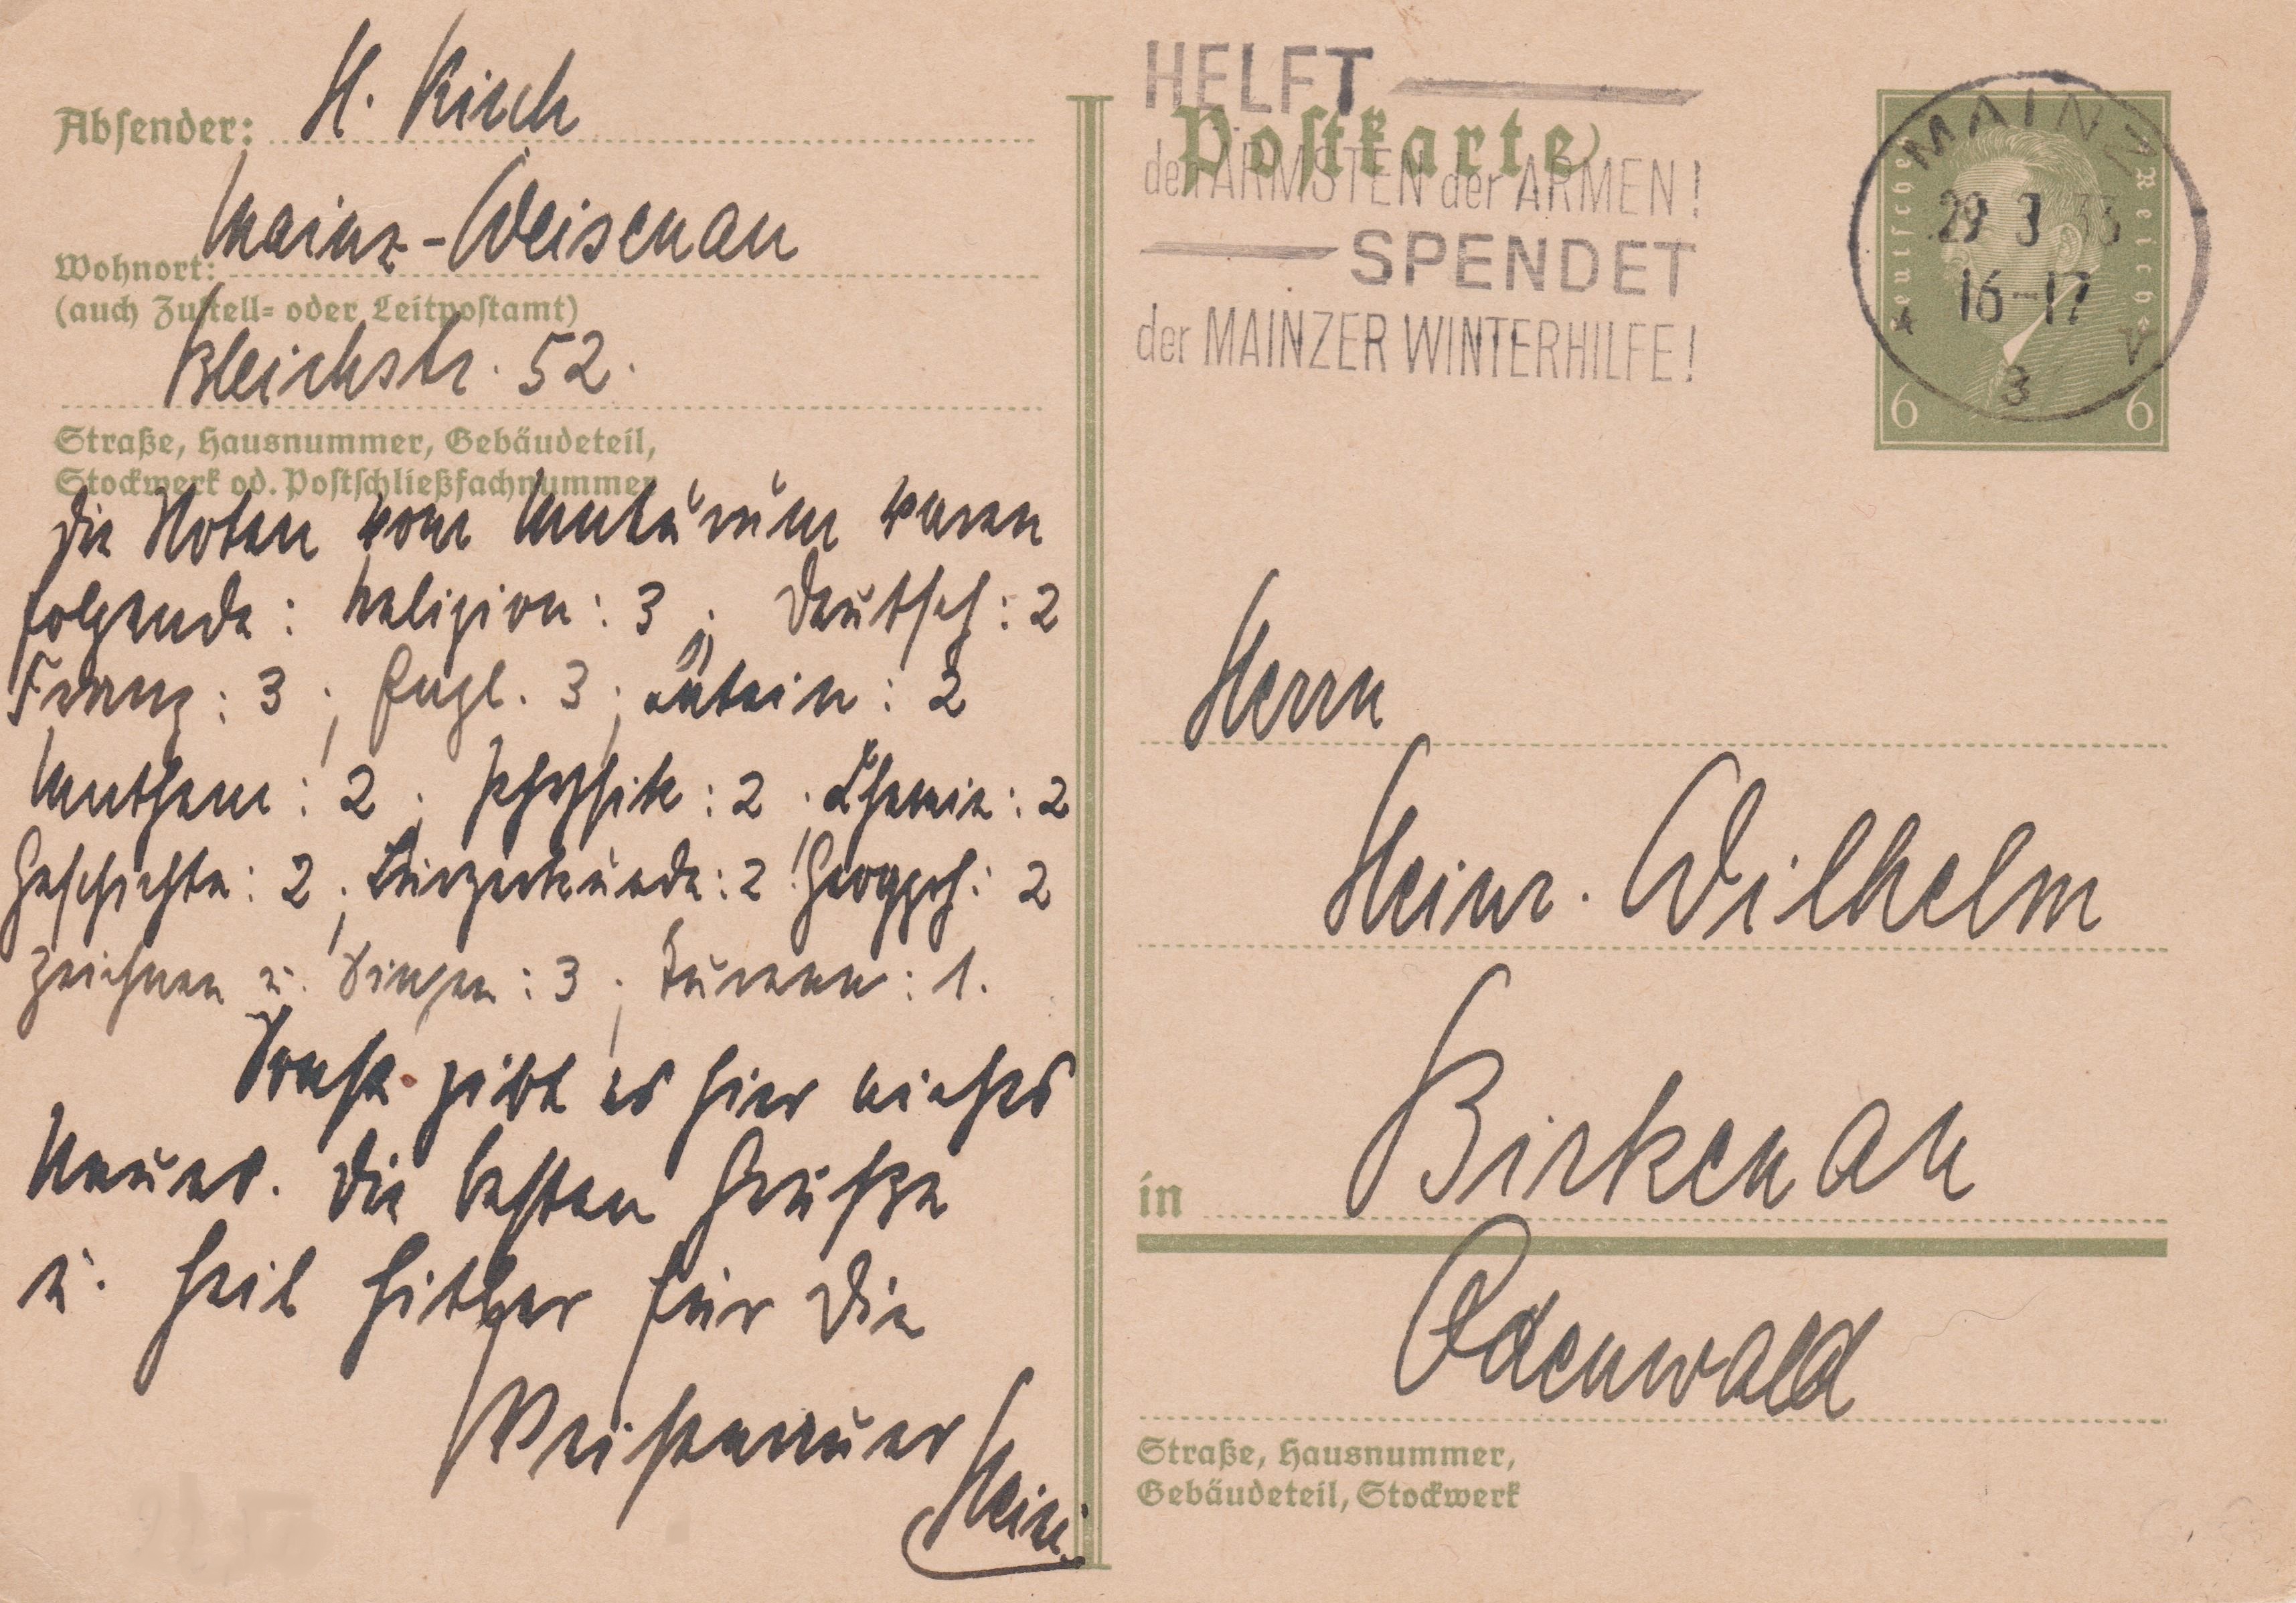 Absender: H. Kirch
Mainz-Weisenau
Wohnort:
(auch Zustell= oder Leitpostamt)
Bleichstr. 52.
Straße, Hausnummer, Gebäudeteil,
Stockwerk od. Postschließfachnummer
Die Noten vom Maturum waren
folgende: Religion: 3; Deutsch: 2
Franz: 3; Engl. 3; Latein: 2
Mathem: 2; Physik: 2; Chemie: 2
Geschichte: 2; Bürgerkunde: 2; Geograph: 2
Zeichnen u. Singen: 3; Turnen: 1.
Sonst gibt es hier nichts
Neues. Die besten Grüße
u. Heil Hitler für die
Weisenauer
Heini
HELFT
Postkarte
den ÄRMSTEN der ARMEN!
SPENDET
der MAINZER WINTERHILFE!
Deutsches Reich
MAINZ
29 3 33
16-17
* 3 V
6 6
Herrn
Heinr. Wilhelm
in Birkenau
Odenwald
Straße, Hausnummer,
Gebäudeteil, Stockwerk